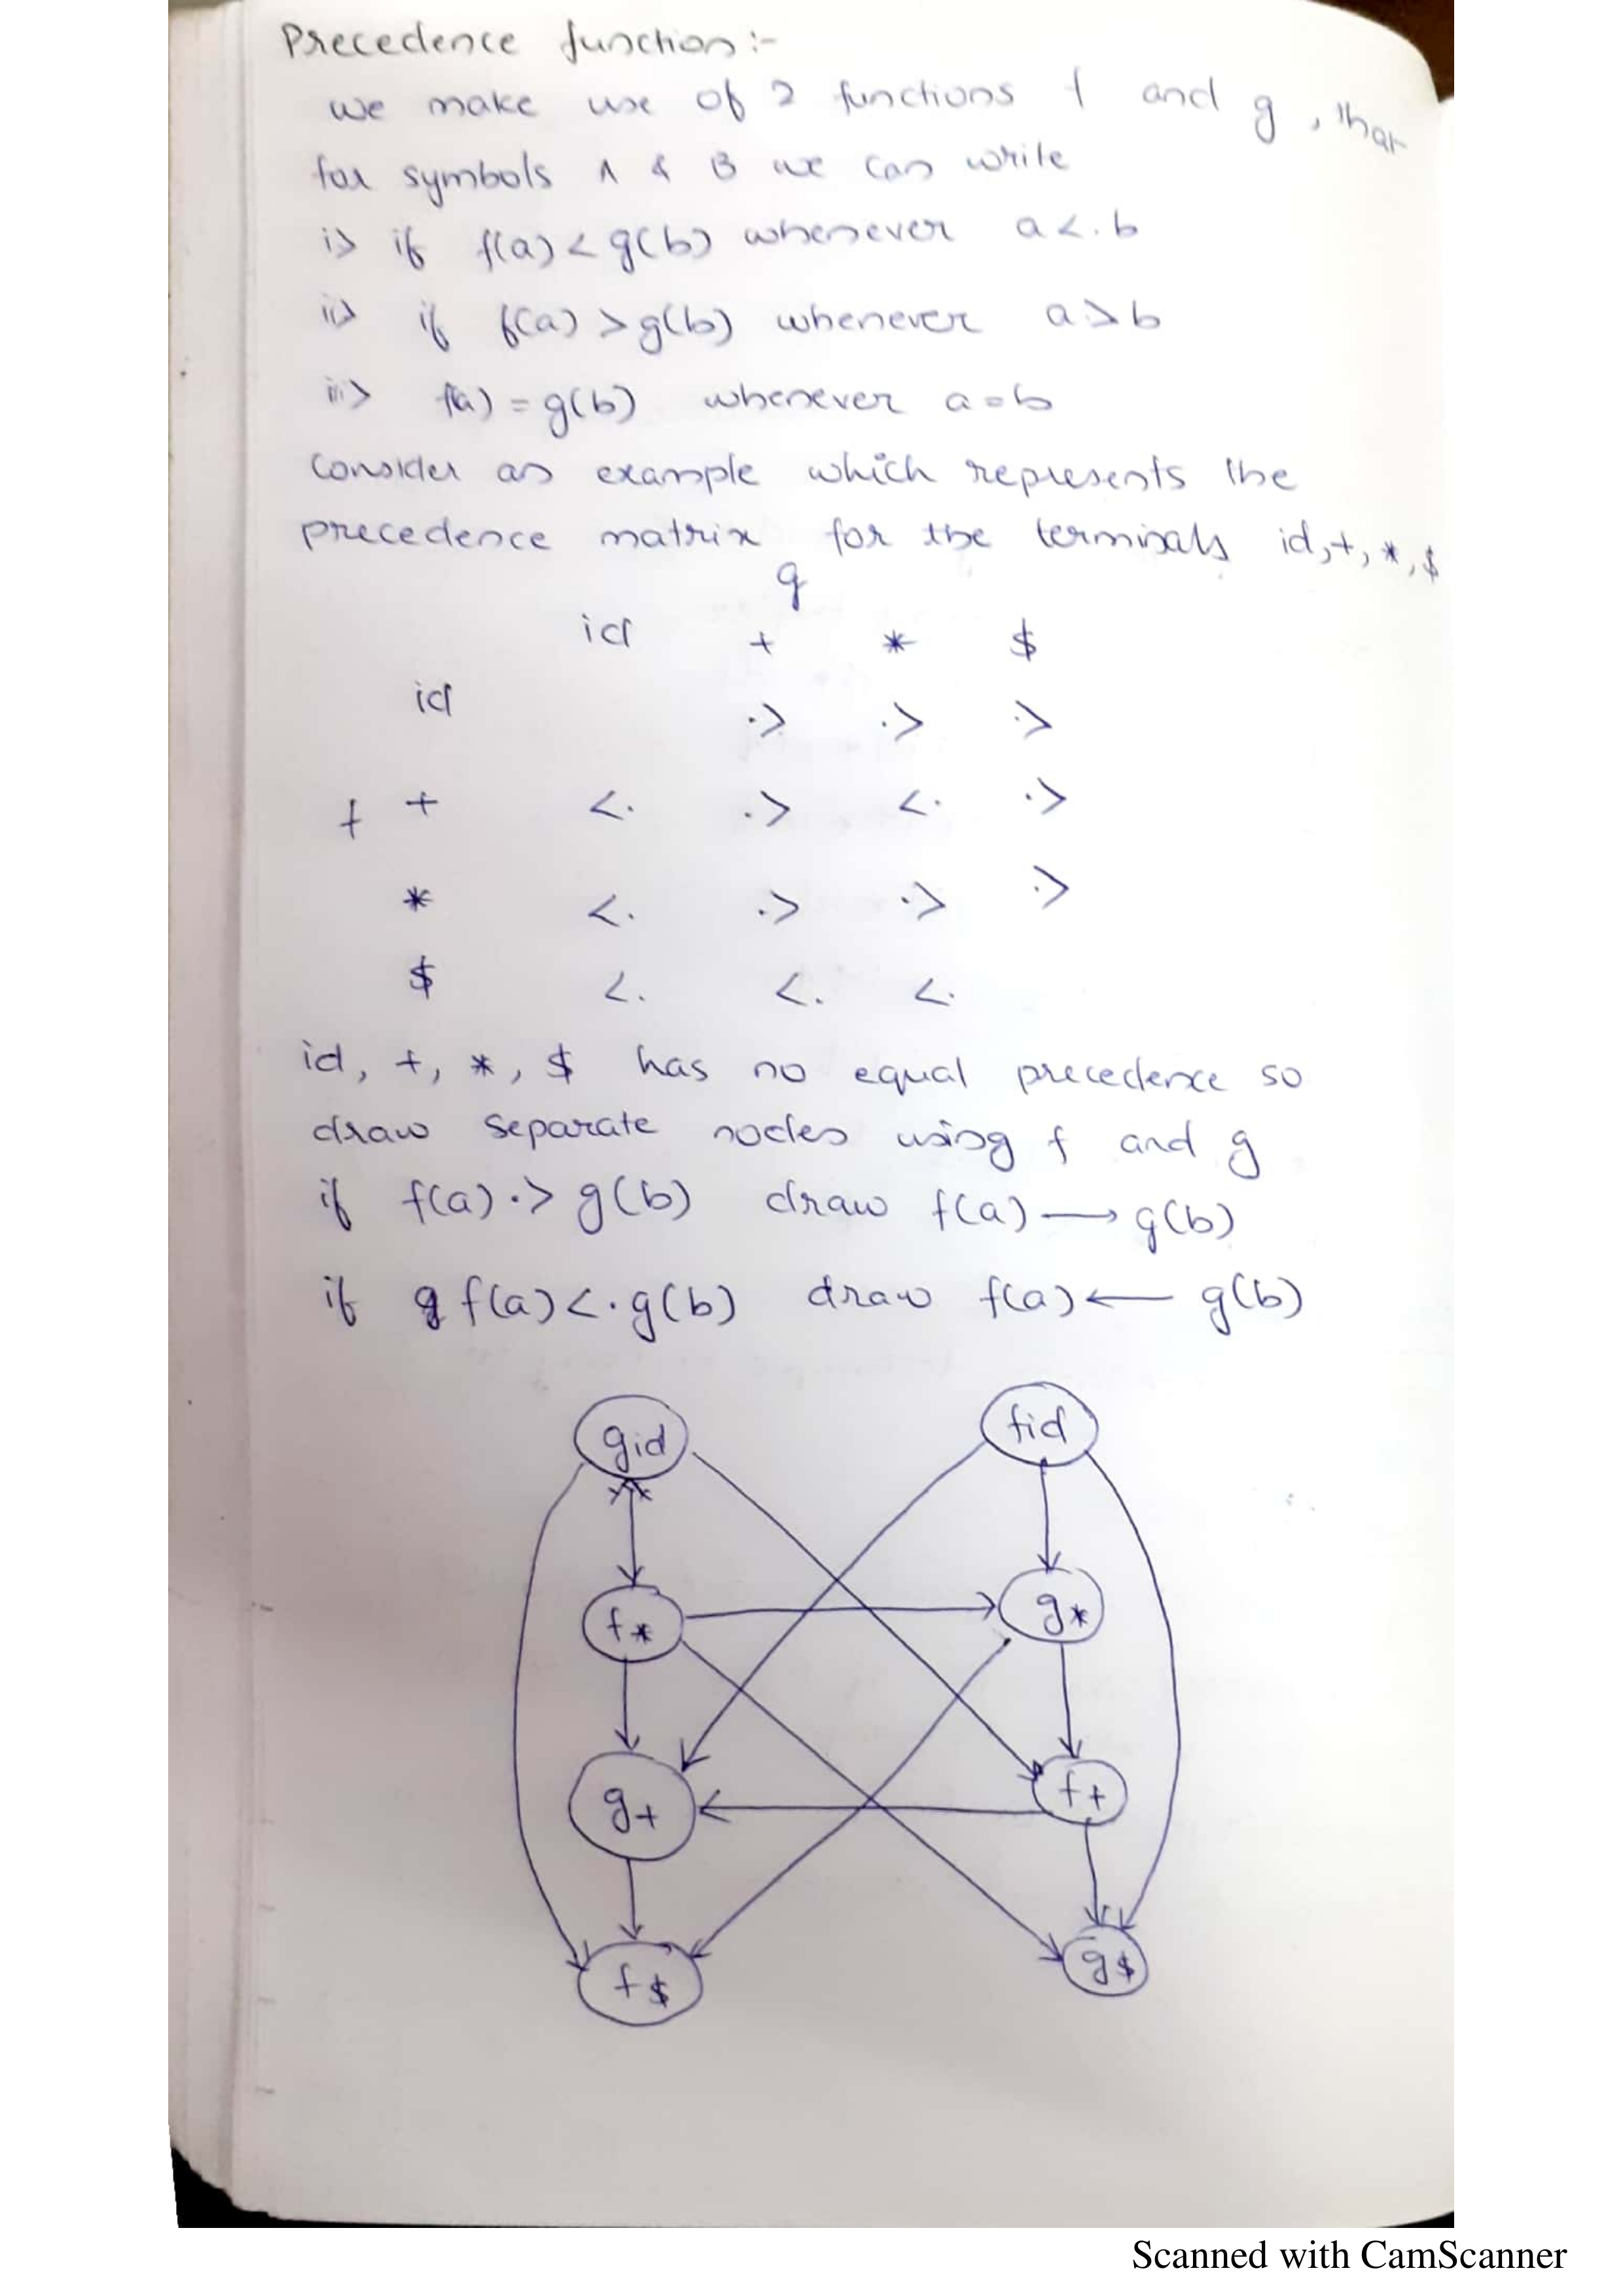 Precedence function:-
we make use of 2 functions f and g, that
for symbols A & B we can write
i> if f(a) < g(b) whenever a <. b
ii> if f(a) > g(b) whenever a .> b
iii> f(a) = g(b) whenever a = b
Consider an example which represents the
precedence matrix for the terminals id,+,*,$
g
id + * $
id .> .> .>
f + <. .> <. .>
* <. .> .> .>
$ <. <. <.
id, +, *, $ has no equal precedence so
draw separate nodes using f and g
if f(a) .> g(b) draw f(a) → g(b)
if f(a) <. g(b) draw f(a) ← g(b)
gid fid
f* g*
g+ f+
f$ g$
Scanned with CamScanner